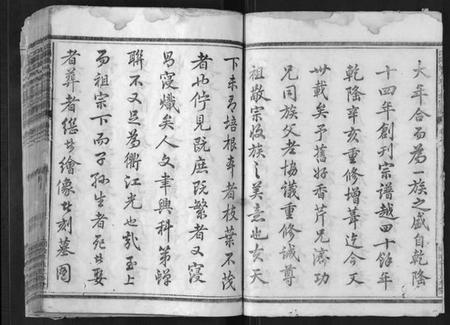 大年合而為一族之盛自乾隆
十四年創刊宗譜越四十餘年
乾隆辛亥重修增葺迄今又
卅載矣予舊好香芹兄濟功
兄同族父老協議重修誠尊
祖敬宗收族之美意也夫天
下未有培根本者枝葉不茂
者也佇見既庶既繁者又寖
昌寖熾矣人文聿興科第蟬
聯不又足為衢江光也哉至上
而祖宗下而子孫生者死者娶
者葬者悉其繪像其刻墓圖